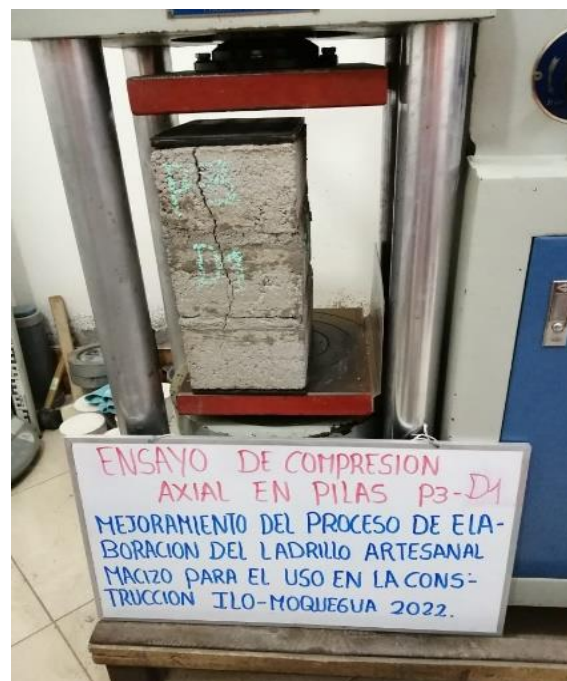 P3
D1
ENSAYO DE COMPRESION
AXIAL EN PILAS P3-D1
MEJORAMIENTO DEL PROCESO DE ELA-
BORACION DEL LADRILLO ARTESANAL
MACIZO PARA EL USO EN LA CONS-
TRUCCION ILO-MOQUEGUA 2022.